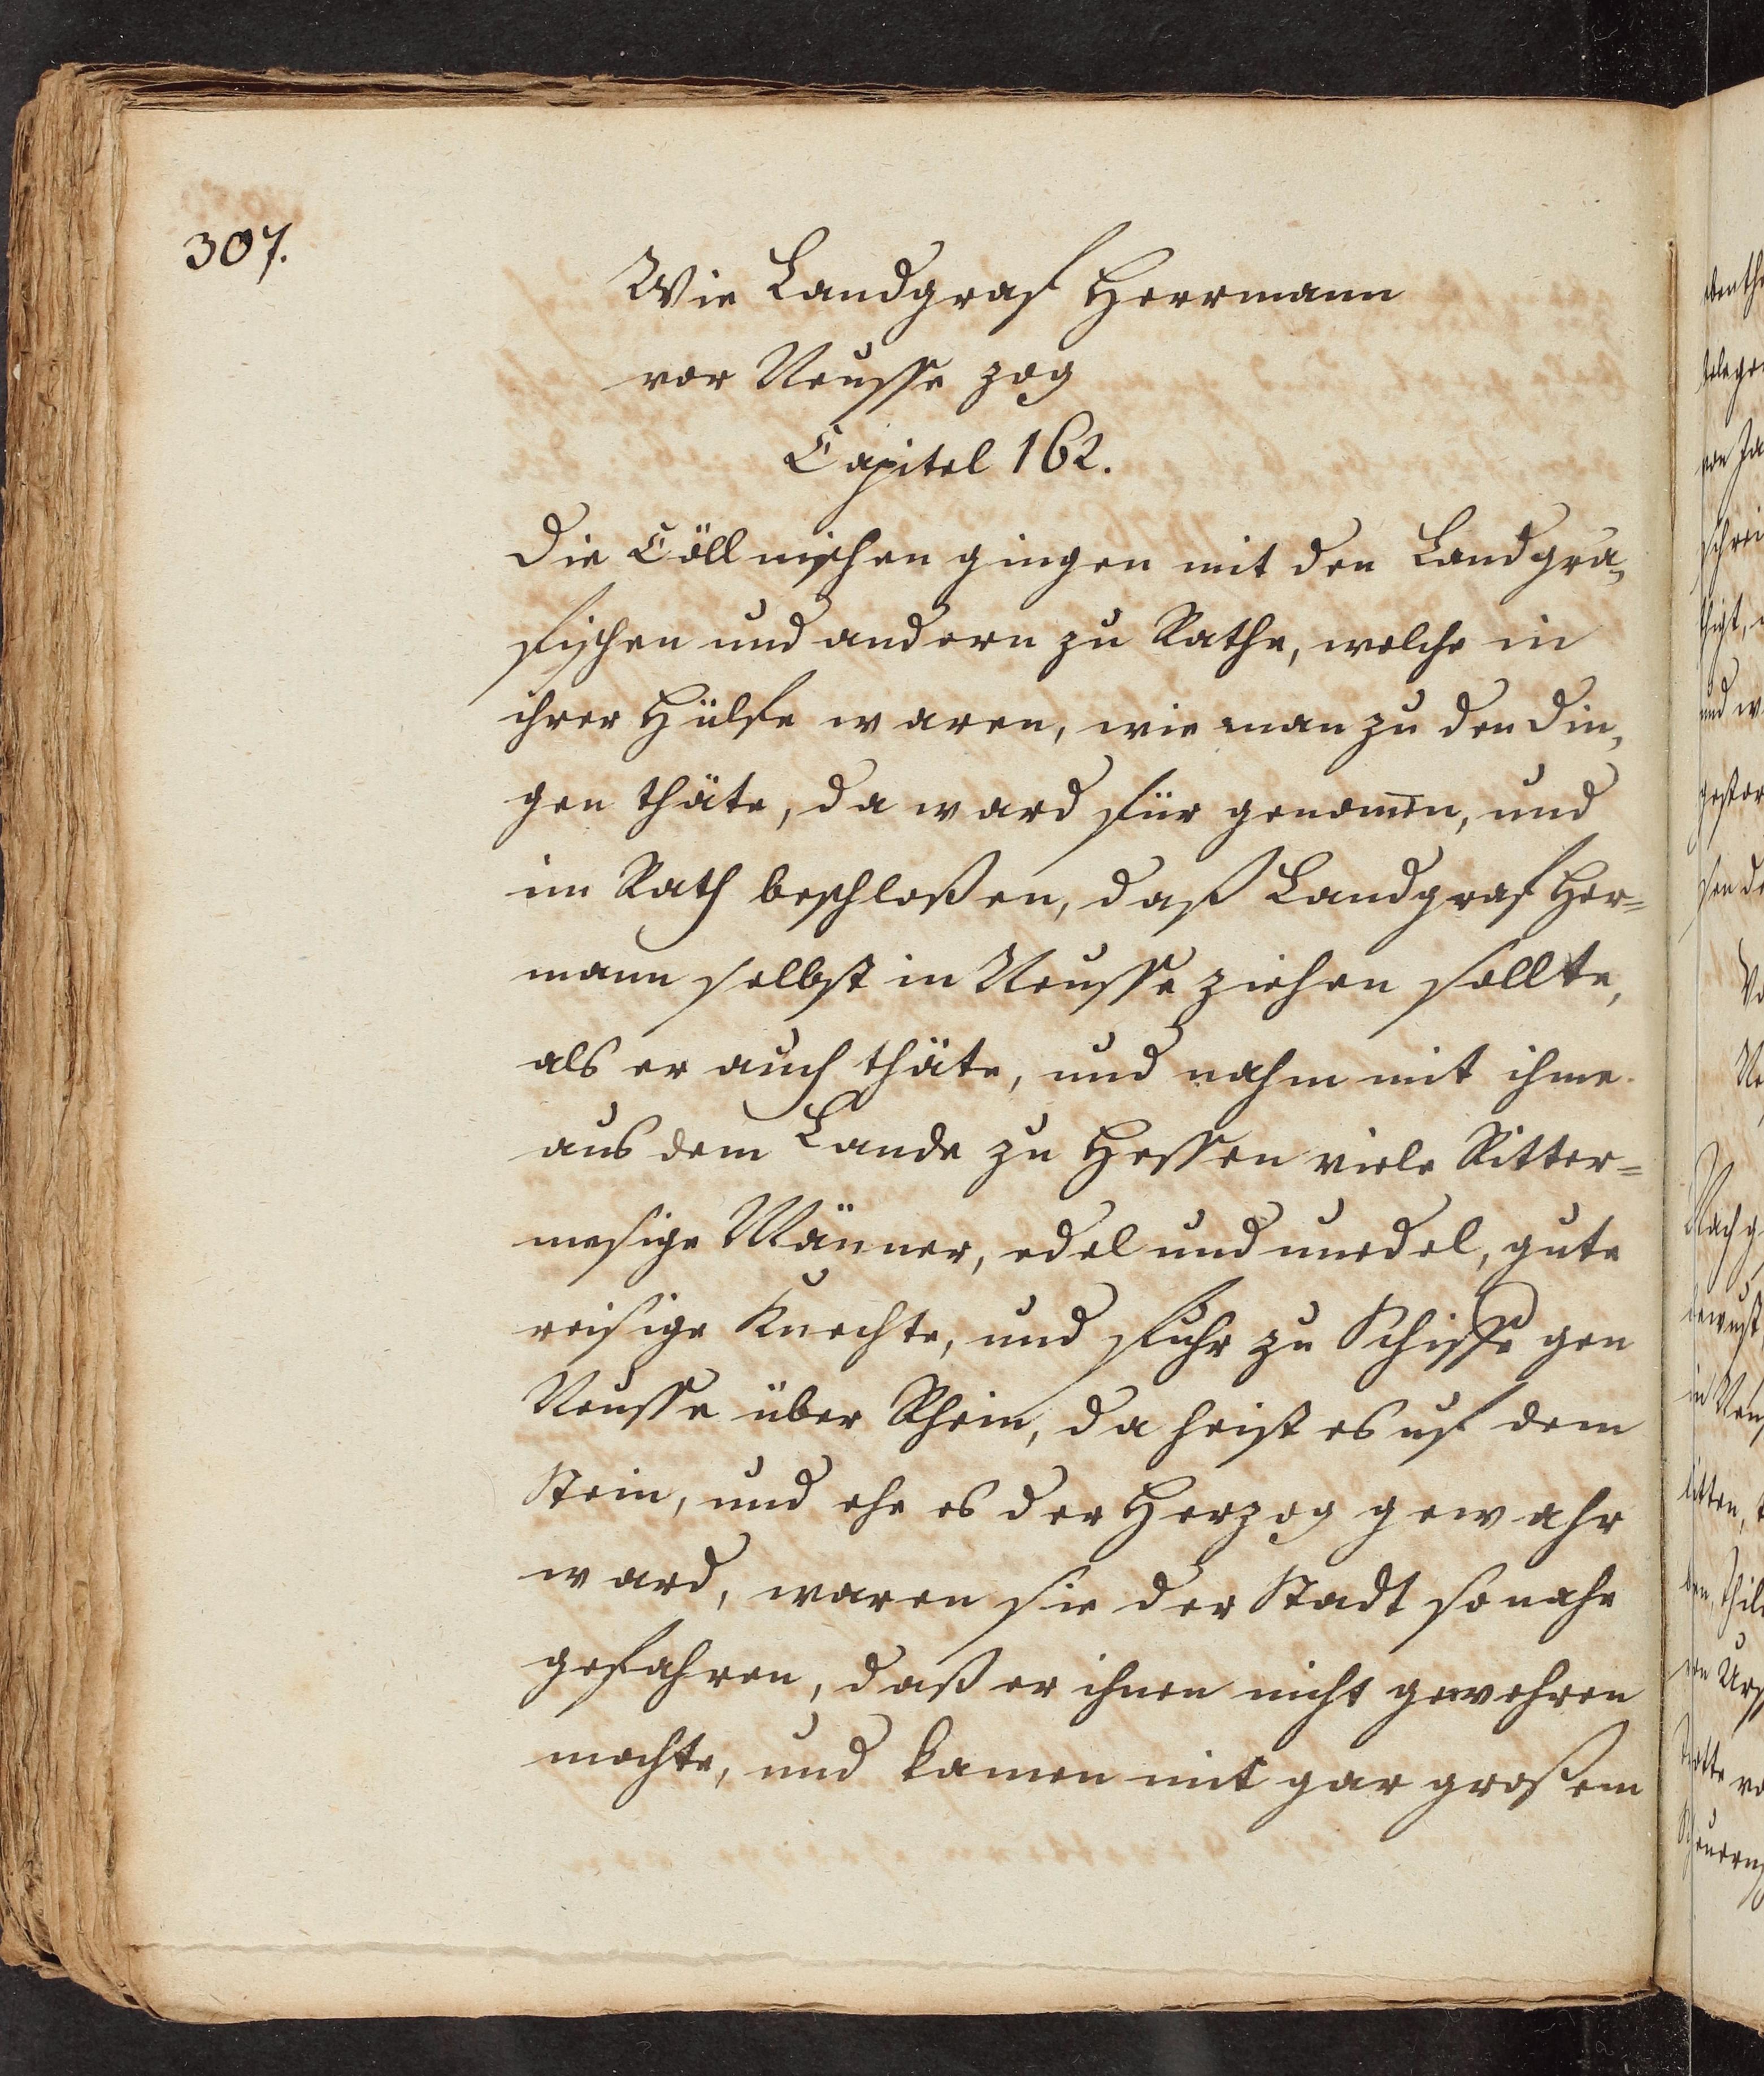 307.
Wie Landgraf Herrmann
vor Neusse zog
Capitel 162.
Die Cöllnischen gingen mit den Landgrä,
fischen und andern zu Rathe, welche in
ihrer Hülfe waren, wie man zu den Din,
gen thäte, da ward für genom̄en, und
im Rath beschloßen, daß Landgraf Her=
mann selbst in Neusse ziehen sollte,
als er auch thäte, und nahm mit ihme
aus dem Lande zu Hessen viele Ritter=
mesige Männer, edel und unedel, gute
reisige Knechte, und fuhr zu Schiffe gen
Neusse über Rhein, da heist es uf dem
Stein, und ehe es der Herzog gewahr
ward, waren sie der Stadt so nahe
gefahren, daß er ihnen nicht gewehren
mochte, und kamen mit gar großem